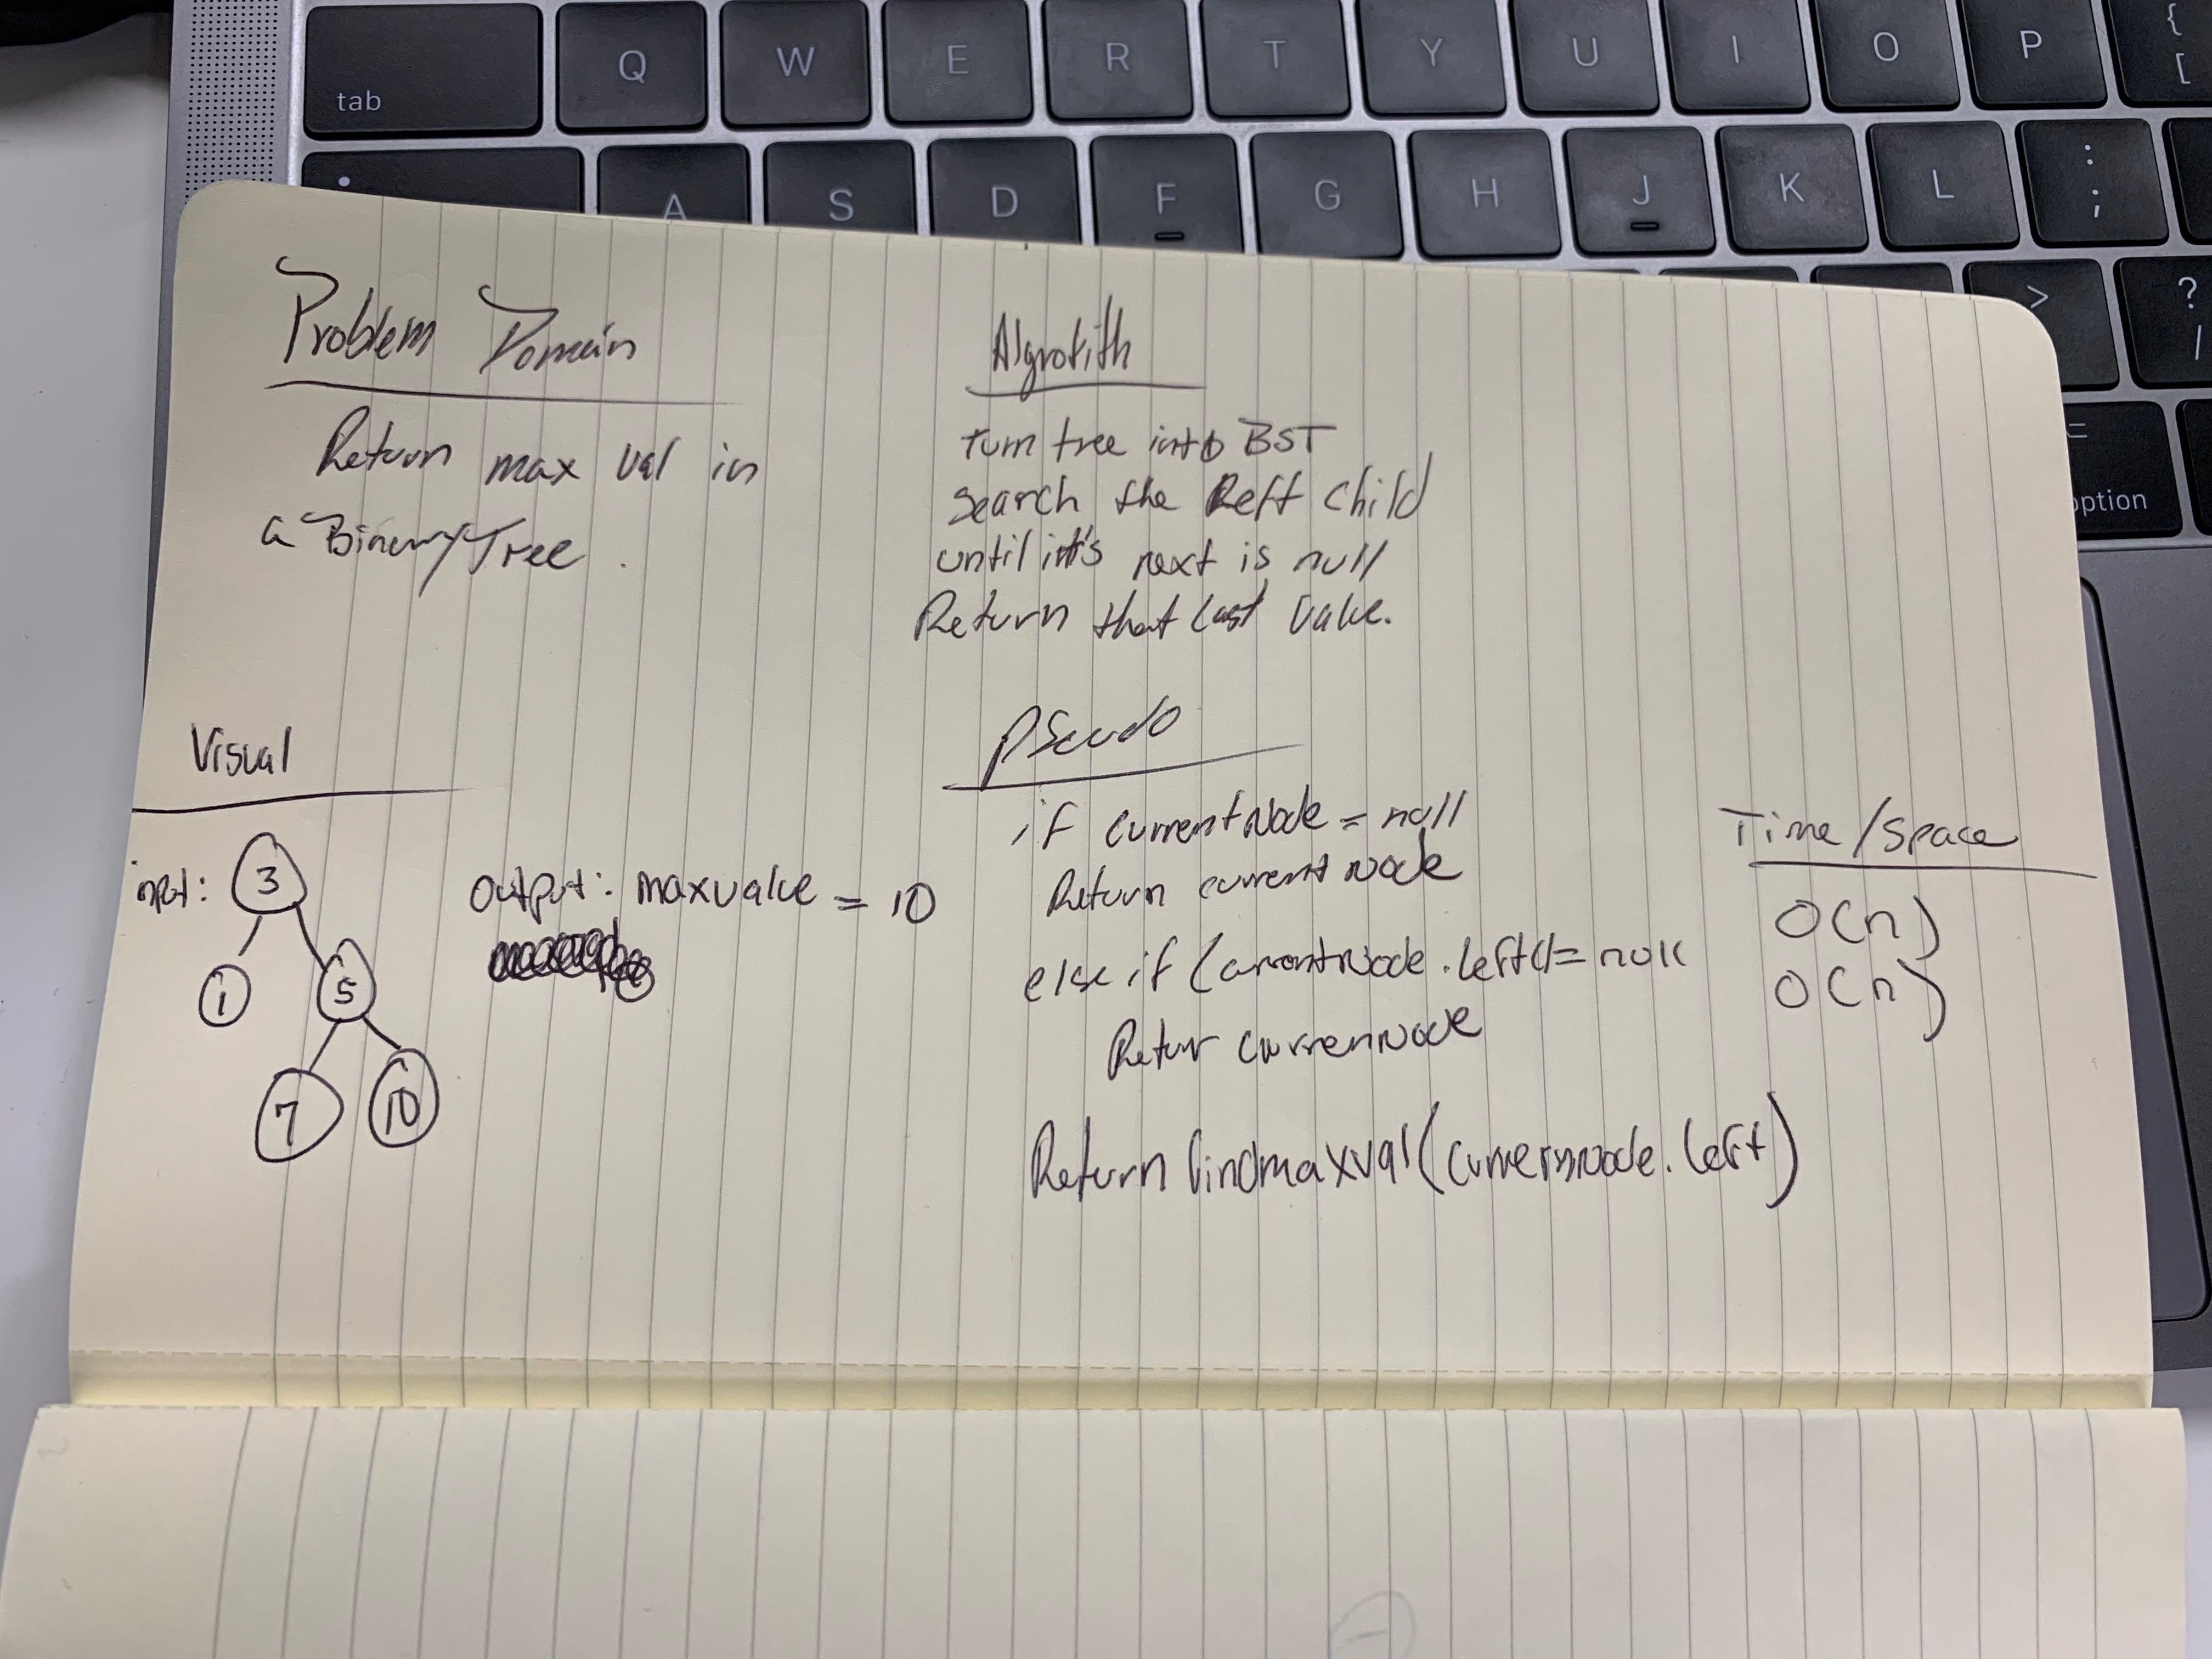 tab
Q W E R T Y U I O P { [
A S D F G H J K L : ;
> ? /
option
Problem Domain
Return max val in
a BinaryTree.
Algrotith
Turn tree into BST
search the Left child
until it's next is null
Return that last value.
Visual
input:
3
1 5
7 10
Output: maxvalue = 10
Pseudo
if currentNode = null
Return currentNode
else if (currentNode.left != null
Return currenNode
Return findmaxval(currenNode.left)
Time/Space
O(n)
O(n)